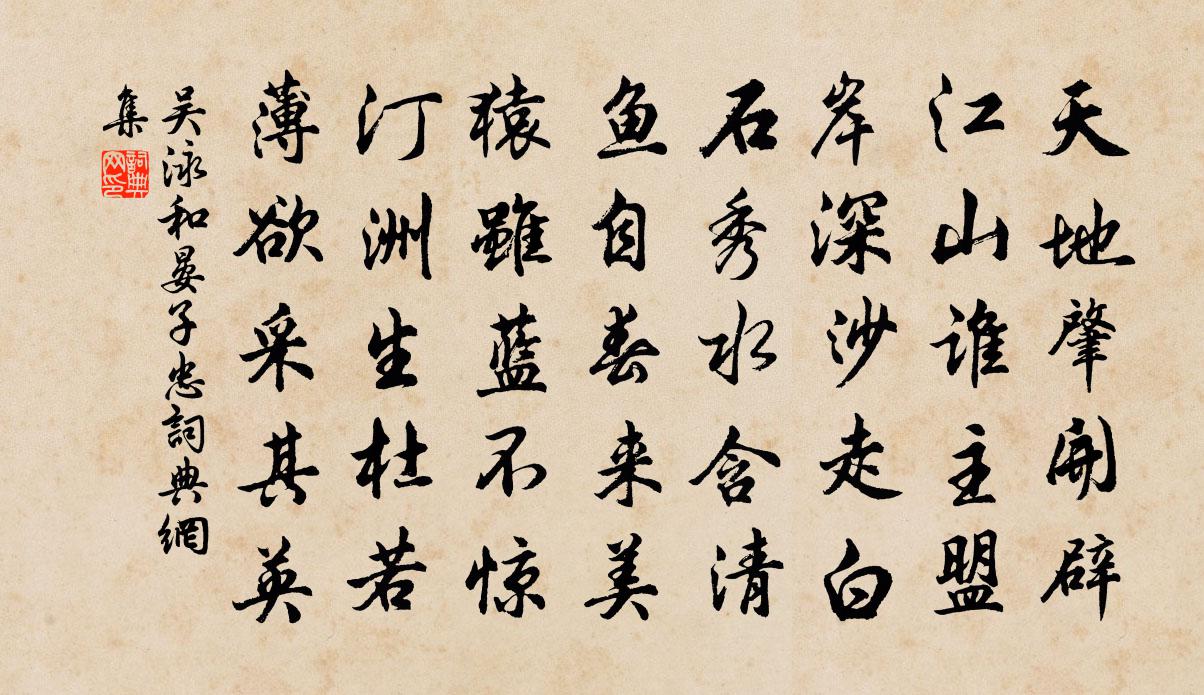 天地肇開辟
江山谁主盟
岸深沙走白
石秀水含清
魚自春来美
猿雖藍不惊
汀洲生杜若
薄欲采其英
吴泳和晏子忠詞典網
集
詞典
网印